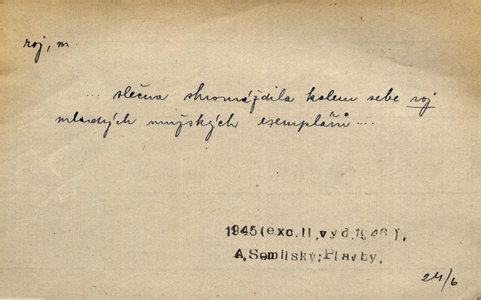 roj, m.
... slečna shromáždila kolem sebe roj
mladých mužských exemplářů....
1945(exc.II.vyd.1946),
A.Somilský:Plavby.
24/6